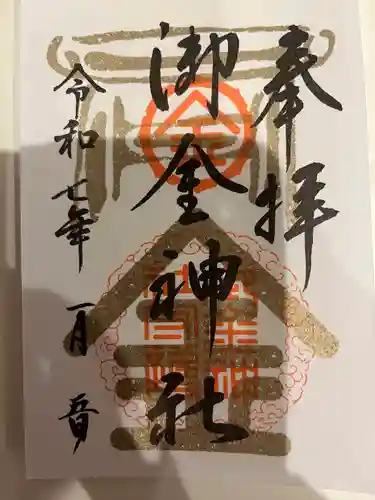 奉拝
御金神社
令和七年一月吉日
金
金